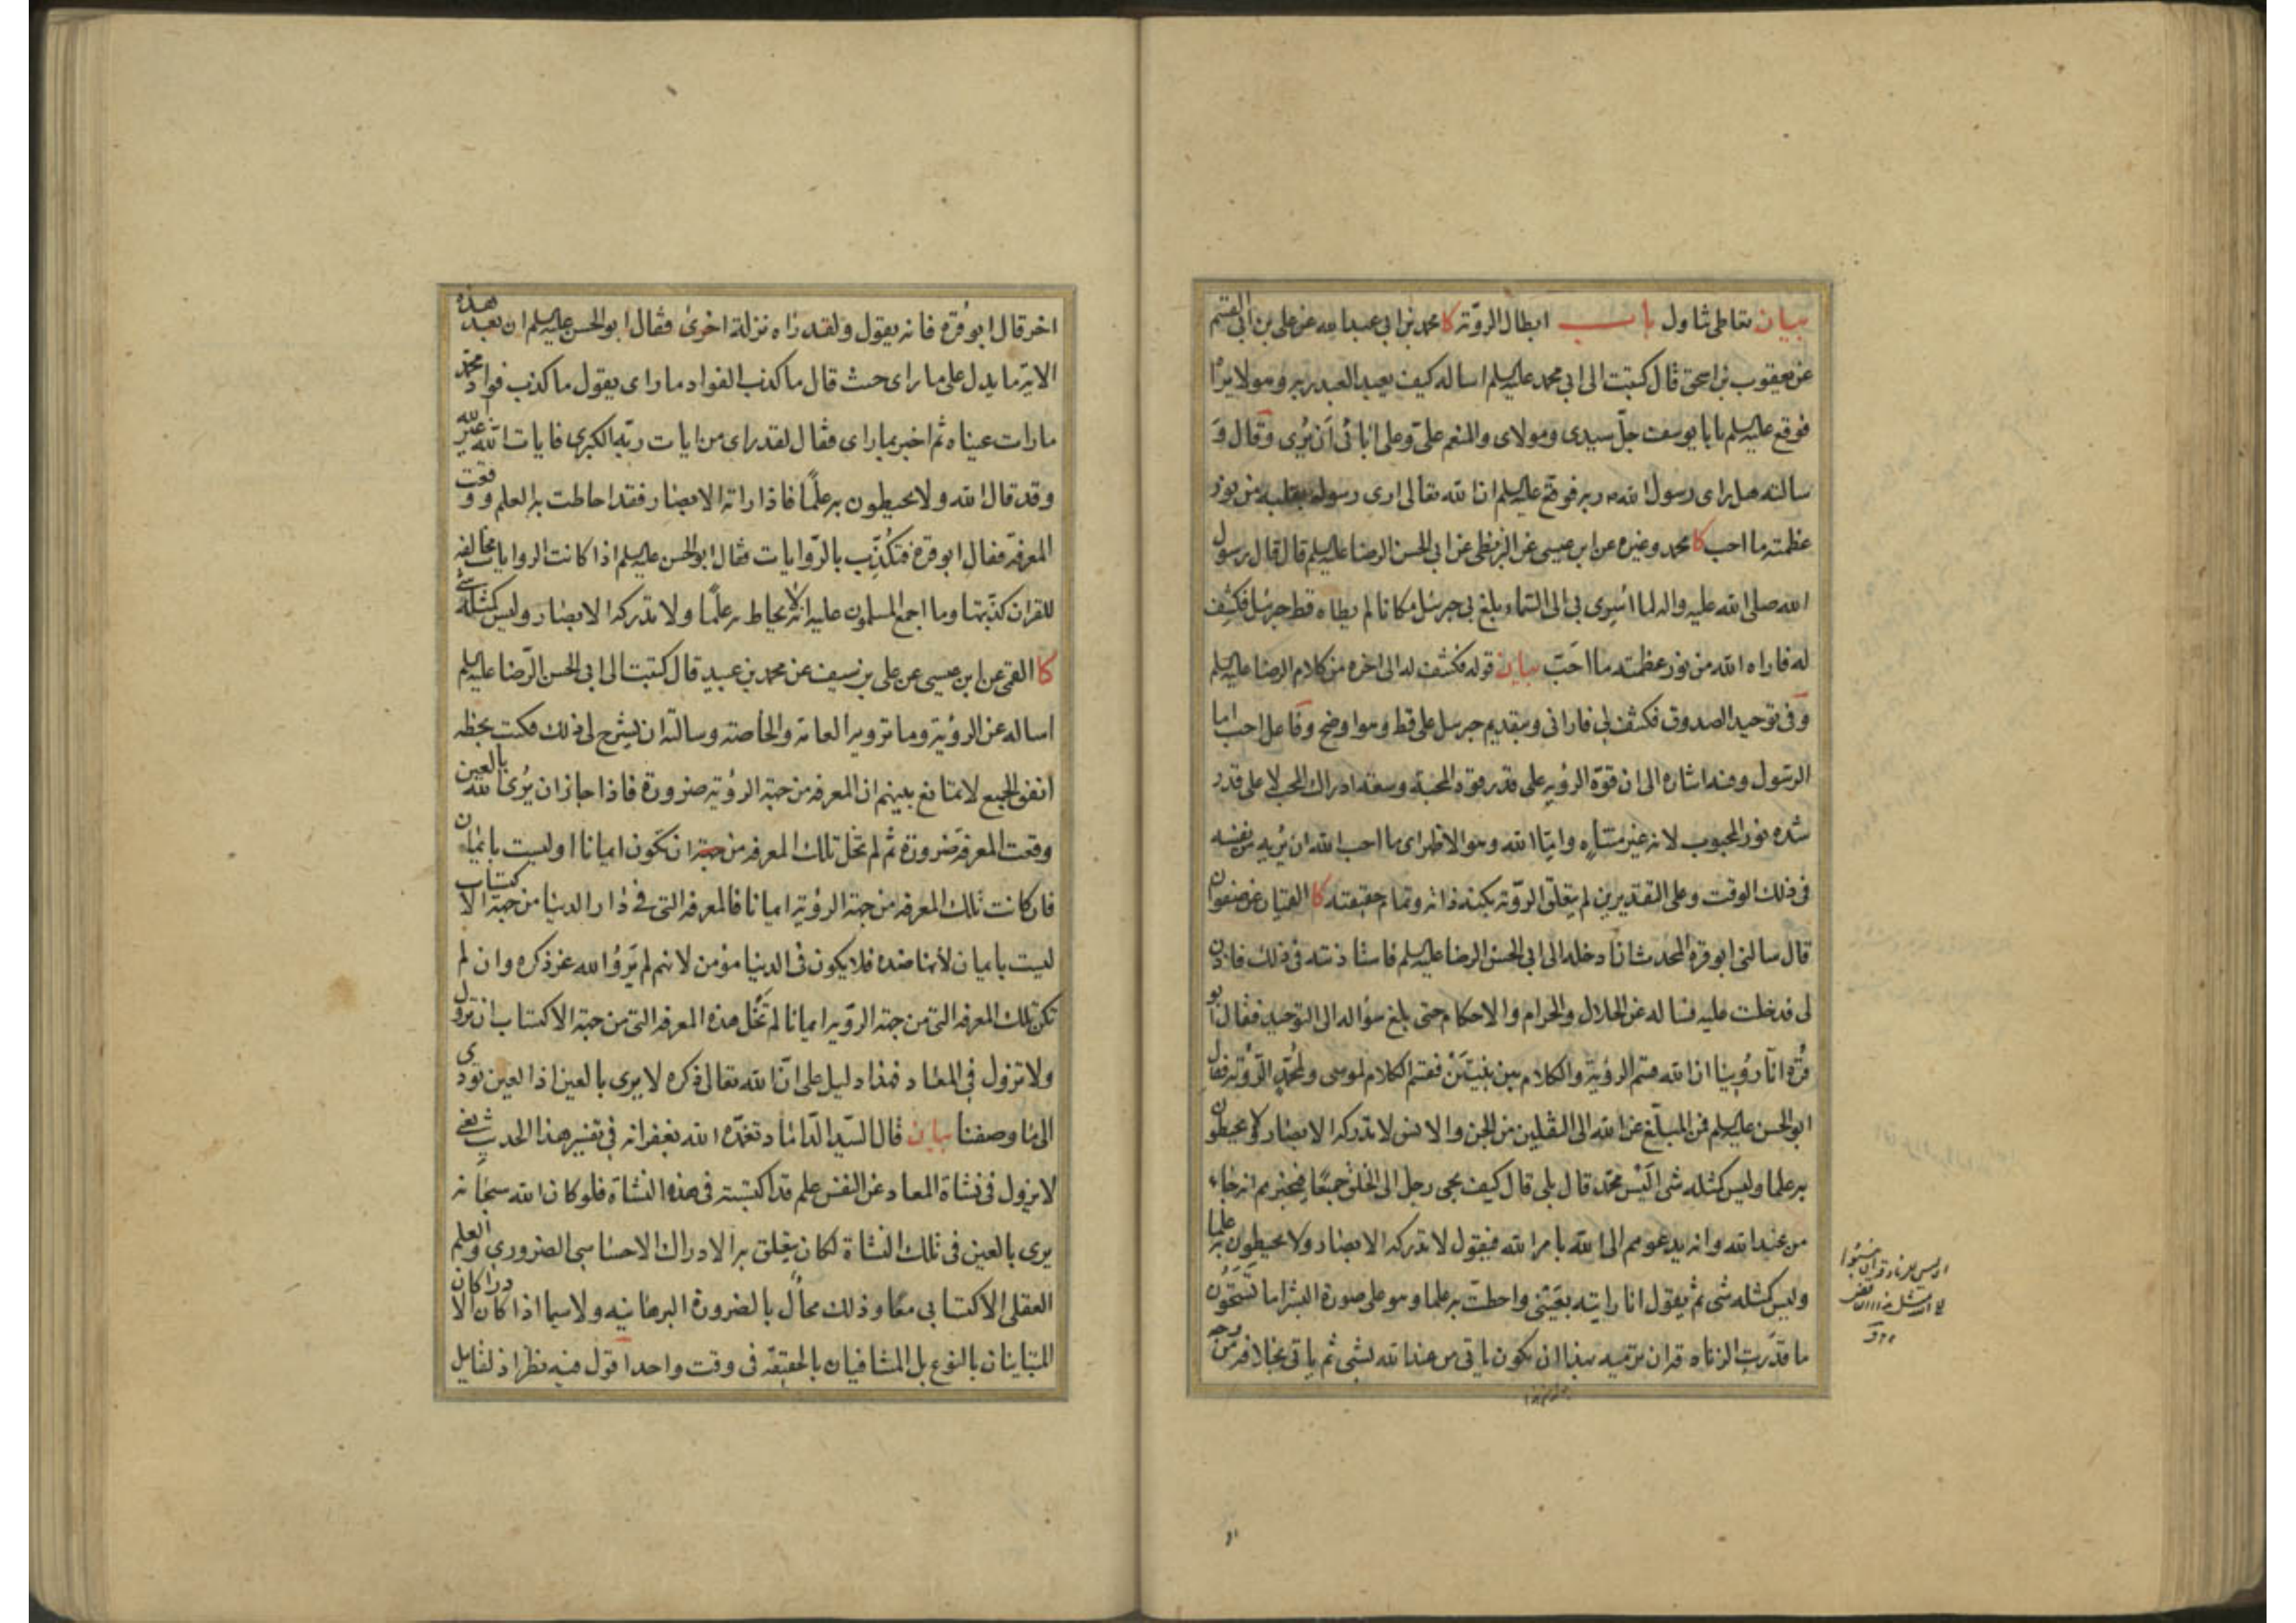 بيان تعاطى تناول باب ابطال الرؤية كا محمد بن ابى عبد الله عن على بن ابى القسم
عن يعقوب بن اسحق قال كتبت الى ابى محمد عليه السلم اساله كيف يعبد العبد ربه وهو لا يراه
فوقع عليه السلم يا با يوسف جلّ سيدى ومولاى والمنعم علىّ وعلى ابائى اَن يُرى وقال وَ
سالته هل راى رسول الله ص ربه فوقع عليه السلم ان الله تعالى ارى رسوله بقلبه من نور
عظمته ما احب كا محمد وغيره عن ابن عيسى عن البزنطى عن ابى الحسن الرضا عليه السلم قال قال رسول
الله صلى الله عليه واله لما اسرى بى الى السماء بلغ بى جبرئيل مكانا لم يطاه قط جبرئيل فكشف
له فاراه الله من نور عظمته ما احَبّ بيان قوله فكشف له الى اخره من كلام الرضا عليه السلم
وفى توحيد الصدوق فكشف لى فارانى وبتقديم جبرئيل على قط وهو اوضح وفاعل احب اما
الرسول وفيه اشاره الى ان قوّة الرؤيه على قدر قوة المحبة وسعة ادراك المحب لا على قدر
شده نور المحبوب لانه غير متناه وامّا الله وهو الاظهر اى ما احب الله ان يُريه من نفسه
فى ذلك الوقت وعلى التقديرين لم يتعلق الرؤية بكنه ذاته وتمام حقيقته كا القميان عن صفوان
قال سالنى ابو قره المحدث ان ادخله الى ابى الحسن الرضا عليه السلم فاستاذنته فى ذلك فاذن
لى فدخلت عليه فساله عن الحلال والحرام والاحكام حتى بلغ سؤاله الى التوحيد فقال ابو
قرّه انّا رُوينا ان الله قسم الرؤية والكلام بين نبيّيَنْ فقسم الكلام لموسى ولمحمّد الرّؤية فقال
ابو الحسن عليه السلم فمن المبلّغ عن الله الى الثقلين من الجن والانس لا تدركه الابصار ولا يحيطون
به علما وليس كمثله شى اليْسَ محمّد قال بلى قال كيف يجى رجل الى الخلق جميعًا فيخبرهم انه جاء
من عند الله وانه يدعوهم الى الله بامر الله فيقول لا تدركه الابصار ولا يحيطون به علما
وليس كمثله شى ثم يقول انا رايته بعَيْنى واحطت به علما وهو على صورة البشر اما تسْتَحُون
ما قدَرت الزنادقه ان ترميه بهذا ان يكون ياتى من عند الله بشى ثم ياتى بخلافه من وجه
اخر قال ابو قرّه فانه يقول ولقد راه نزلة اخرى فقال ابو الحسن عليه السلم ان بعد هذه
الاية ما يدل على ما راى حيث قال ما كذب الفواد ما راى يقول ما كذب فواد محمّد
ما رات عيناه ثم اخبر بما راى فقال لقد راى من ايات ربّه الكبرى فايات الله غير الله
وقد قال الله ولا يحيطون به علمًا فاذا راته الابصار فقد احاطت به العلم ووقعت
المعرفة فقال ابو قره فتكذّب بالرّوايات فقال ابو الحسن عليه السلم اذا كانت الروايات مخالفه
للقران كذبتها وما اجمع المسلمون عليه انه لا يحاط به علمًا ولا تدركه الابصار وليس كمثله شئ
كا القمى عن ابن عيسى عن على بن سيف عن محمد بن عبيد قال كتبت الى ابى الحسن الرّضا عليه السلم
اساله عن الرؤية وما ترويه العامة والخاصة وسالته ان يشرح لى ذلك فكتب بخطه
اتفق الجميع لا تمانع بينهم ان المعرفه من جهة الرؤية ضرورة فاذا جاز ان يُرى الله بالعين
وقعت المعرفه ضرورة ثم لم تخل تلك المعرفه من ان تكون ايمانا او ليست بايمان
فان كانت تلك المعرفه من جهة الرؤية ايمانا فالمعرفه التى فى دار الدنيا من جهة الاكتساب
ليست بايمان لانها ضده فلا يكون فى الدنيا مؤمن لانهم لم يَرَوُا الله عز ذكره وان لم
تكن تلك المعرفه التى من جهة الرؤيه ايمانا لم تَخْل هذه المعرفه التى من جهة الاكتساب ان تزول
ولا تزول فى المعاد فهذا دليل على انّ الله تعالى ذكره لا يرى بالعين اذ العين تؤدى
الى ما وصفنا بيان قال السّيد الدّاماد تغمّده الله بغفرانه فى تفسير هذا الحديث يعنى
لا يزول فى نشاة المعاد عن النفس علم قد اكتسبته فى هذه النشاة فلو كان الله سبحانه
يرى بالعين فى تلك النشاة لكان يتعلق به الادراك الاحساسى الضرورى والعلم
العقلى الاكتسابى معًا وذلك محالٌ بالضرورة البرهانيه ولا سيما اذا كان الادراكان
المتباينان بالنوع بل المتنافيان بالحقيقه فى وقت واحد اقول فيه نظر اذ لقايل